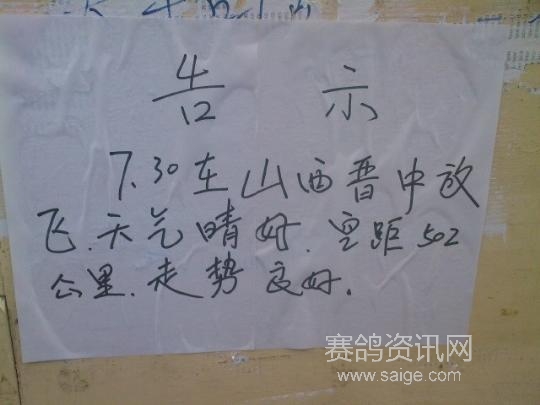 告 示
7.30在山西晋中放
飞.天气晴好.空距502
公里.走势良好.
赛鸽资讯网
www.saige.com